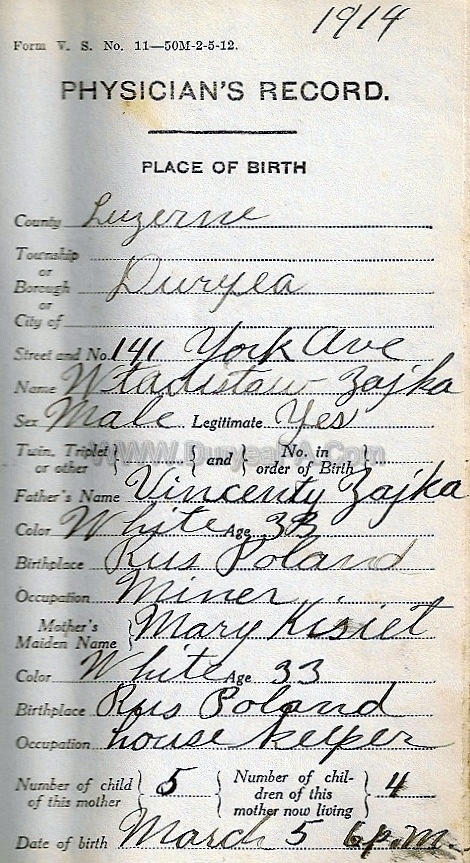 1914
Form V. S. No. 11—50M-2-5-12.
PHYSICIAN'S RECORD.
PLACE OF BIRTH
County Luzerne
Township
or
Borough Duryea
or
City of
Street and No. 141 York Ave
Name Wladislaw Zajka
Sex Male Legitimate Yes
Twin, Triplet or other } { } and { No. in order of Birth }
WWW.DuryeaPA.Com
Father's Name Vincenty Zajka
Color White Age 33
Birthplace Rus Poland
Occupation Miner
Mother's Maiden Name } Mary Kisiel
Color White Age 33
Birthplace Rus Poland
Occupation house keeper
Number of child of this mother } 5 { Number of children of this mother now living } 4
Date of birth March 5 6 p.m.